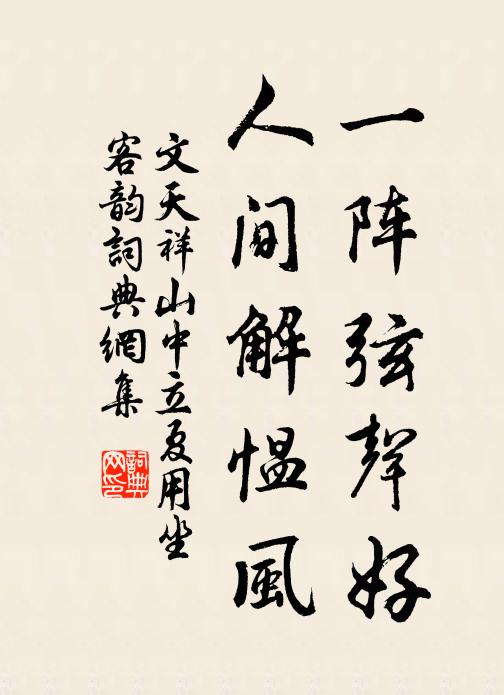 一阵弦聲好
人间解愠風
文天祥山中立夏用坐
客韵詞典網集
詞典網印